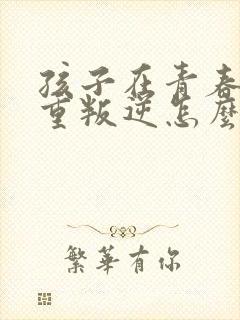 孩子在青春
重叛逆怎麼
繁華有你